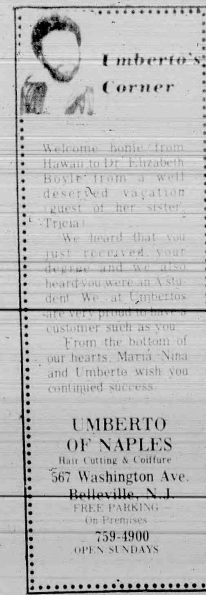 Umberto's
Corner
Welcome home from
Hawaii to Dr. Elizabeth
Boyle from a well
deserved vacation
(guest of her sister,
Tricia)
We heard that you
just received your
degree and we also
heard you were an A stu-
dent. We at Umbertos
are very proud to have a
customer such as you.
From the bottom of
our hearts, Maria, Nina
and Umberto wish you
continued success.
UMBERTO
OF NAPLES
Hair Cutting & Coiffure
567 Washington Ave.
Belleville, N.J.
FREE PARKING
On Premises
759-4900
OPEN SUNDAYS